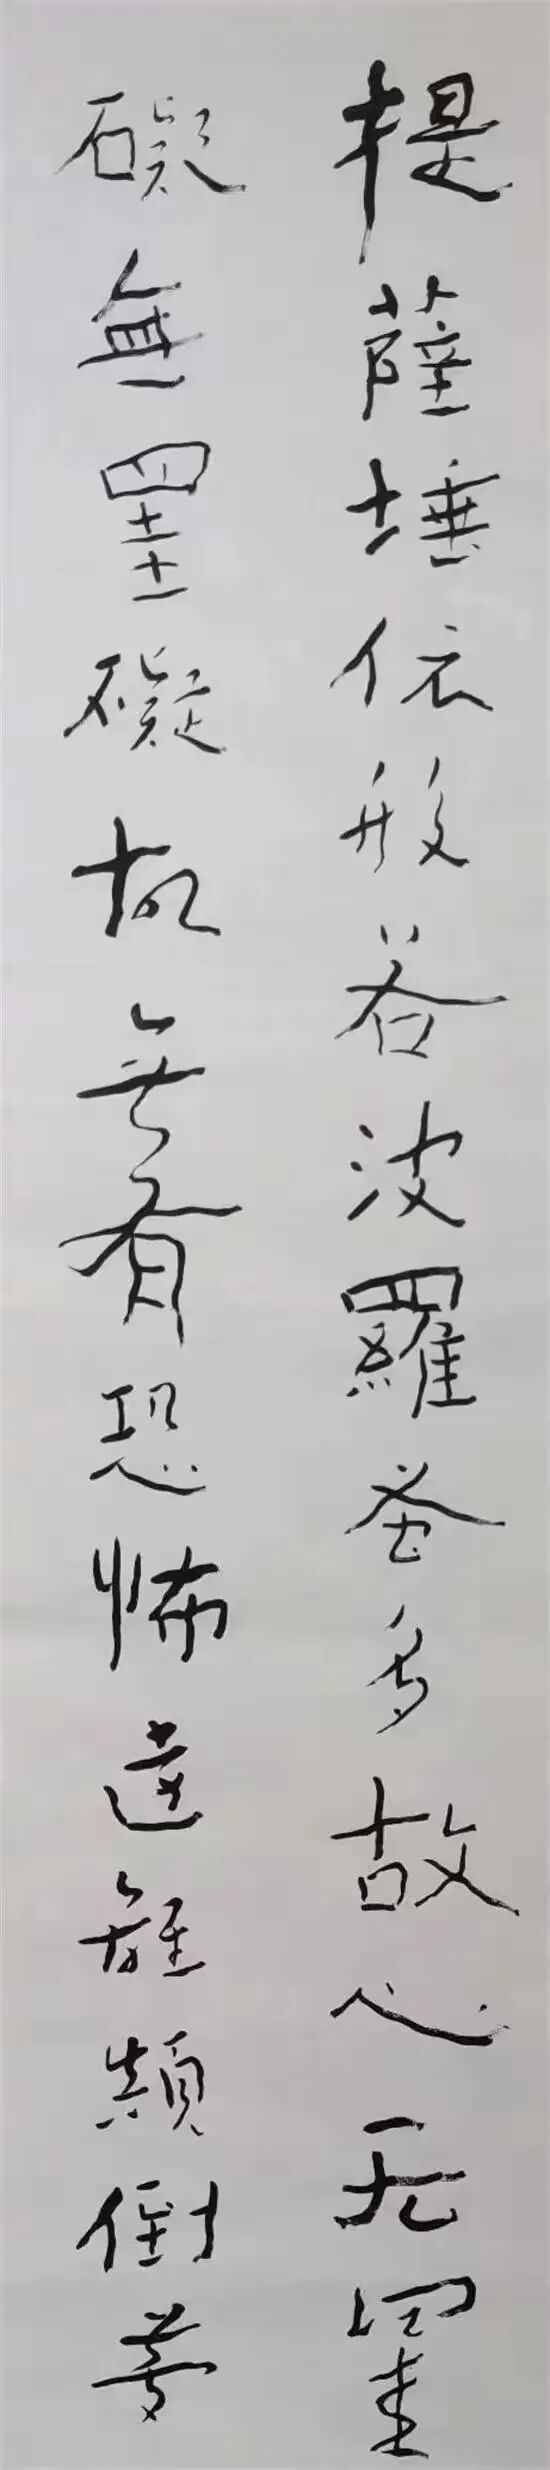 提薩埵依般若波羅蜜多故心无罣
礙無罣礙故無有恐怖遠離顛倒夢